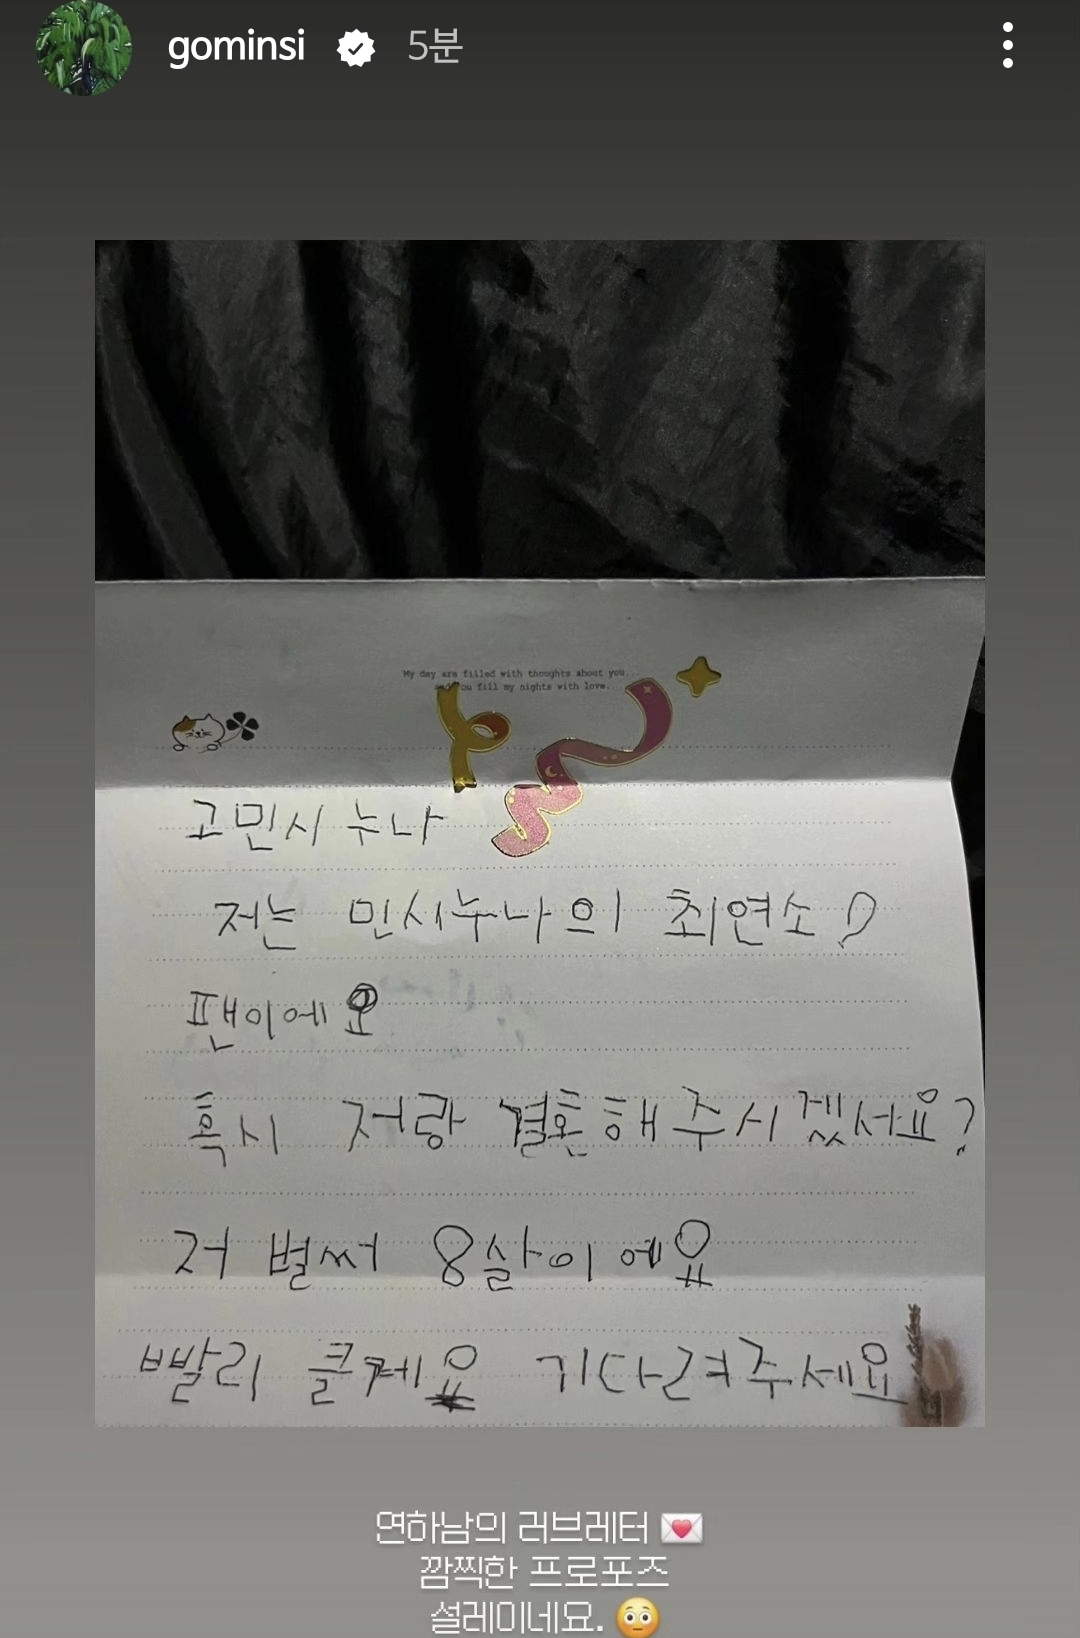 gominsi 5분
My day are filled with thoughts about you...
and you fill my nights with love.
고민시 누나
저는 민시누나의 최연소
팬이에요
혹시 저랑 결혼해주시겠서요?
저 벌써 8살이에요
빨리 클께요 기다려주세요
연하남의 러브레터 💌
깜찍한 프로포즈
설레이네요. 😳